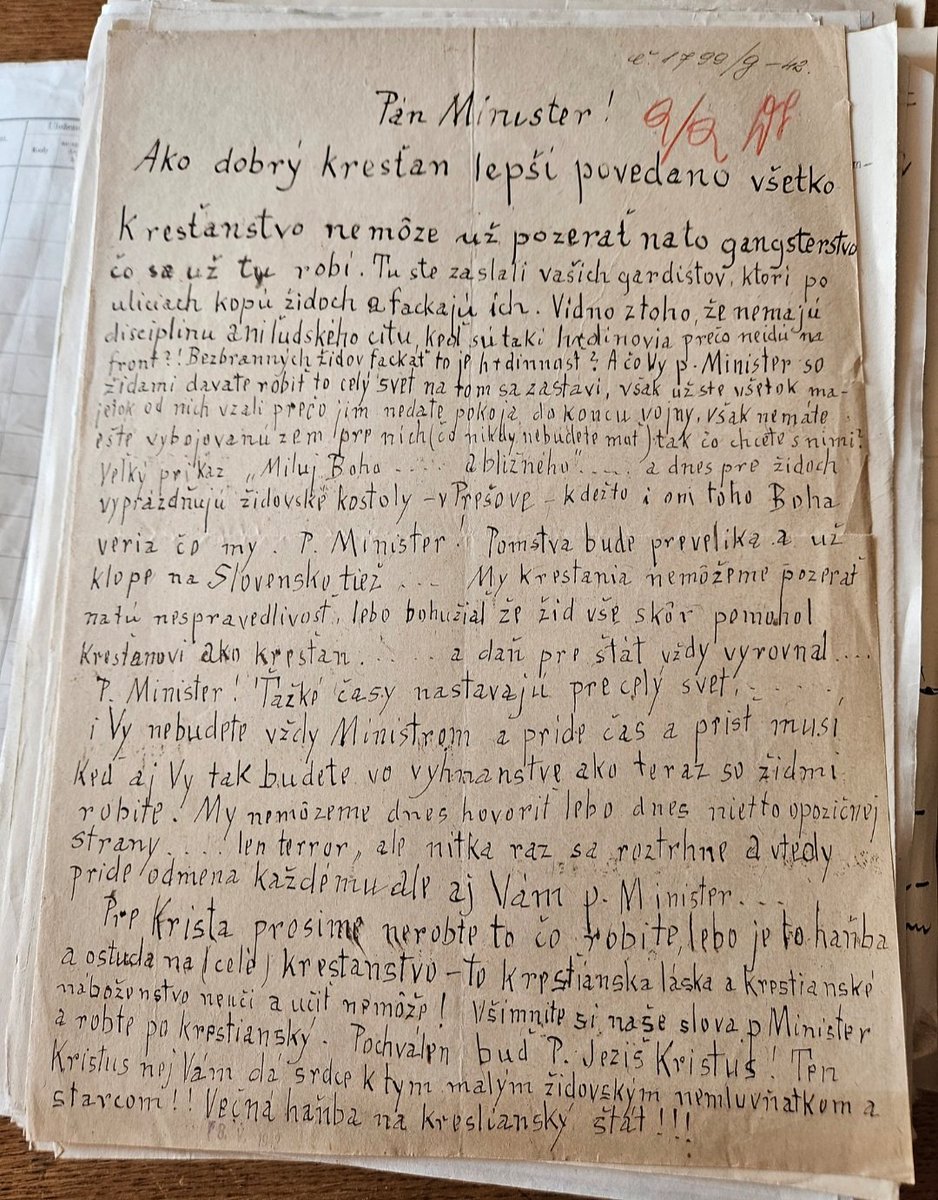 č. 1799/g-42.
Pán Minister!
2/2
Ako dobrý kresťan lepší povedano všetko
Kresťanstvo nemôže už pozerať na to gangsterstvo
čo sa už tu robí. Tu ste zaslali vašich gardistov, ktoři po
uliciach kopú židoch a fackajú ich. Vidno z toho, že nemajú
disciplinu ani ľudského citu, keď sú taki hrdinovia prečo neidú na
front?! Bezbranných židov fackať to je hrdinnosť? A čo Vy p. Minister so
židami davate robiť to celý svet na tom sa zastavi, však už ste všetok ma-
jetok od nich vzali prečo jim nedate pokoja do koncu vojny, však nemáte
ešte vybojovanú zem pre nich (čo nikdy nebudete mať) tak čo chcete s nimi?
Veľký prikaz „Miluj Boha .... a bližného" ..... a dnes pre židoch
vyprazdňujú židovské kostoly - v Prešove - kdežto i oni toho Boha
veria čo my. P. Minister! Pomstva bude prevelika a už
klope na Slovensko tiež ... My kresťania nemôžeme pozerať
na tú nespravedlivosť, lebo bohužiaľ že žid vše skôr pomuhol
kresťanovi ako kresťan ..... a daň pre štát vždy vyrovnal ....
P. Minister! Ťažké časy nastavajú pre celý svet, ......
i Vy nebudete vždy Ministrom a pride čas a prisť musí
Keď aj Vy tak budete vo vyhnanstve ako teraz so židmi
robite. My nemôzeme dnes hovoriť lebo dnes nietto opozičnej
strany .... len terror, ale nitka raz sa roztrhne a vtedy
pride odmena každemu ale aj Vám p. Minister...
Pre Krista prosime nerobte to čo robite, lebo je to haňba
a ostuda na (celé) kresťanstvo - to krestianska láska a krestianské
náboženstvo neučí a učiť nemôže! Všimnite si naše slova p Minister
a robte po krestianský. Pochválen buď P. Jeziš Kristus! Ten
Kristus nej Vám da srdce k tym malým židovským nemluvňatkom a
starcom!! Večná haňba na krestianský štát!!!